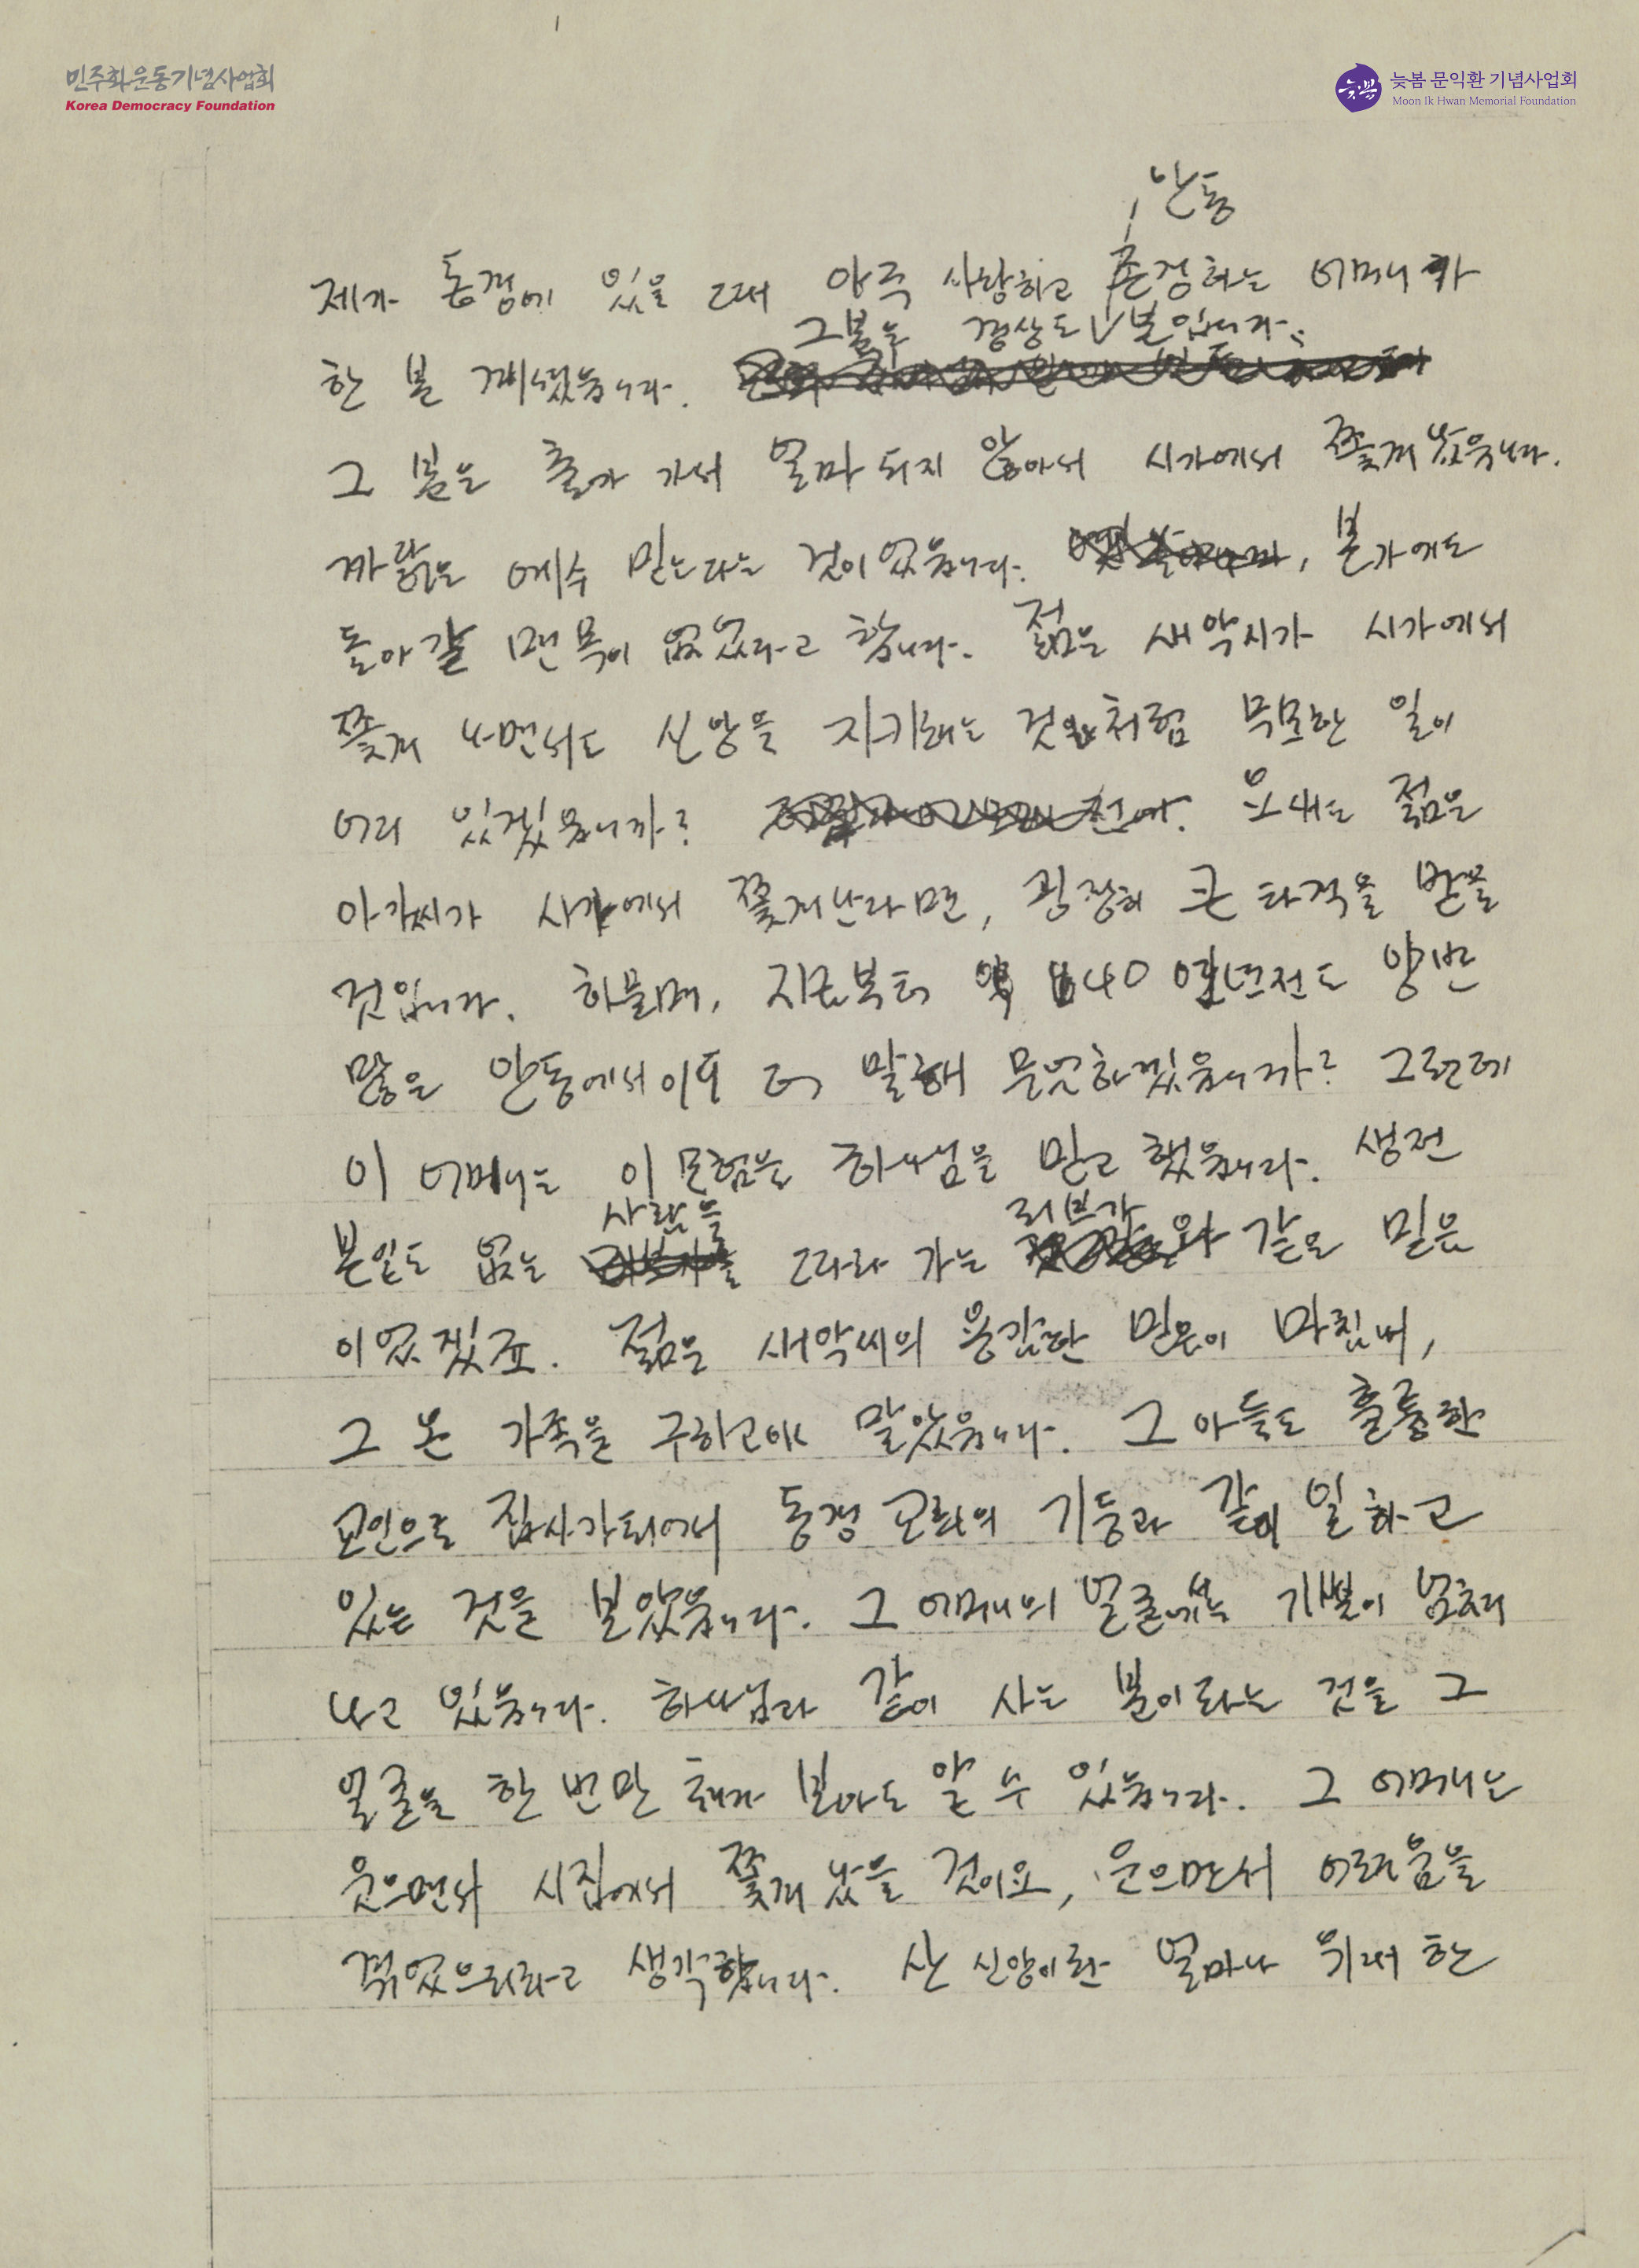 민주화운동기념사업회
Korea Democracy Foundation
늦봄
늦봄 문익환 기념사업회
Moon Ik Hwan Memorial Foundation
안동
제가 동경에 있을 때 아주 사랑하고 존경하는 어머니가
그분은 경상도 분입니다.
한 분 계셨읍니다.
그 분은 출가 가서 얼마 되지 않아서 시가에서 쫓겨났읍니다.
까닭은 예수 믿는다는 것이었읍니다. 본가에도
돌아갈 면목이 없었다고 합니다. 젊은 새악시가 시가에서
쫓겨 나면서도 신앙을 지키려는 것처럼 무모한 일이
어디 있겠읍니까? 요새도 젊은
아가씨가 시가에서 쫓겨난다면, 굉장히 큰 타격을 받을
것입니다. 하물며, 지금부터 약 40 년전도 양반
많은 안동에서이랴 더 말해 무엇하겠읍니까? 그런데
이 어머니는 이 모험을 하나님을 믿고 했읍니다. 생전
사람을 리브가
본일도 없는 따라 가는 와 같은 믿음
이었겠죠. 젊은 새악씨의 용감한 믿음이 마침내,
그 온 가족을 구하고야 말았읍니다. 그 아들도 훌륭한
교인으로 집사가 되어서 동경 교회의 기둥과 같이 일하고
있는 것을 보았읍니다. 그 어머니의 얼굴에는 기쁨이 넘쳐
나고 있읍니다. 하나님과 같이 사는 분이라는 것을 그
얼굴을 한 번만 쳐다 보아도 알 수 있읍니다. 그 어머니는
웃으면서 시집에서 쫓겨 났을 것이요, 웃으면서 어려움을
겪었으리라고 생각합니다. 산 신앙이란 얼마나 위대한